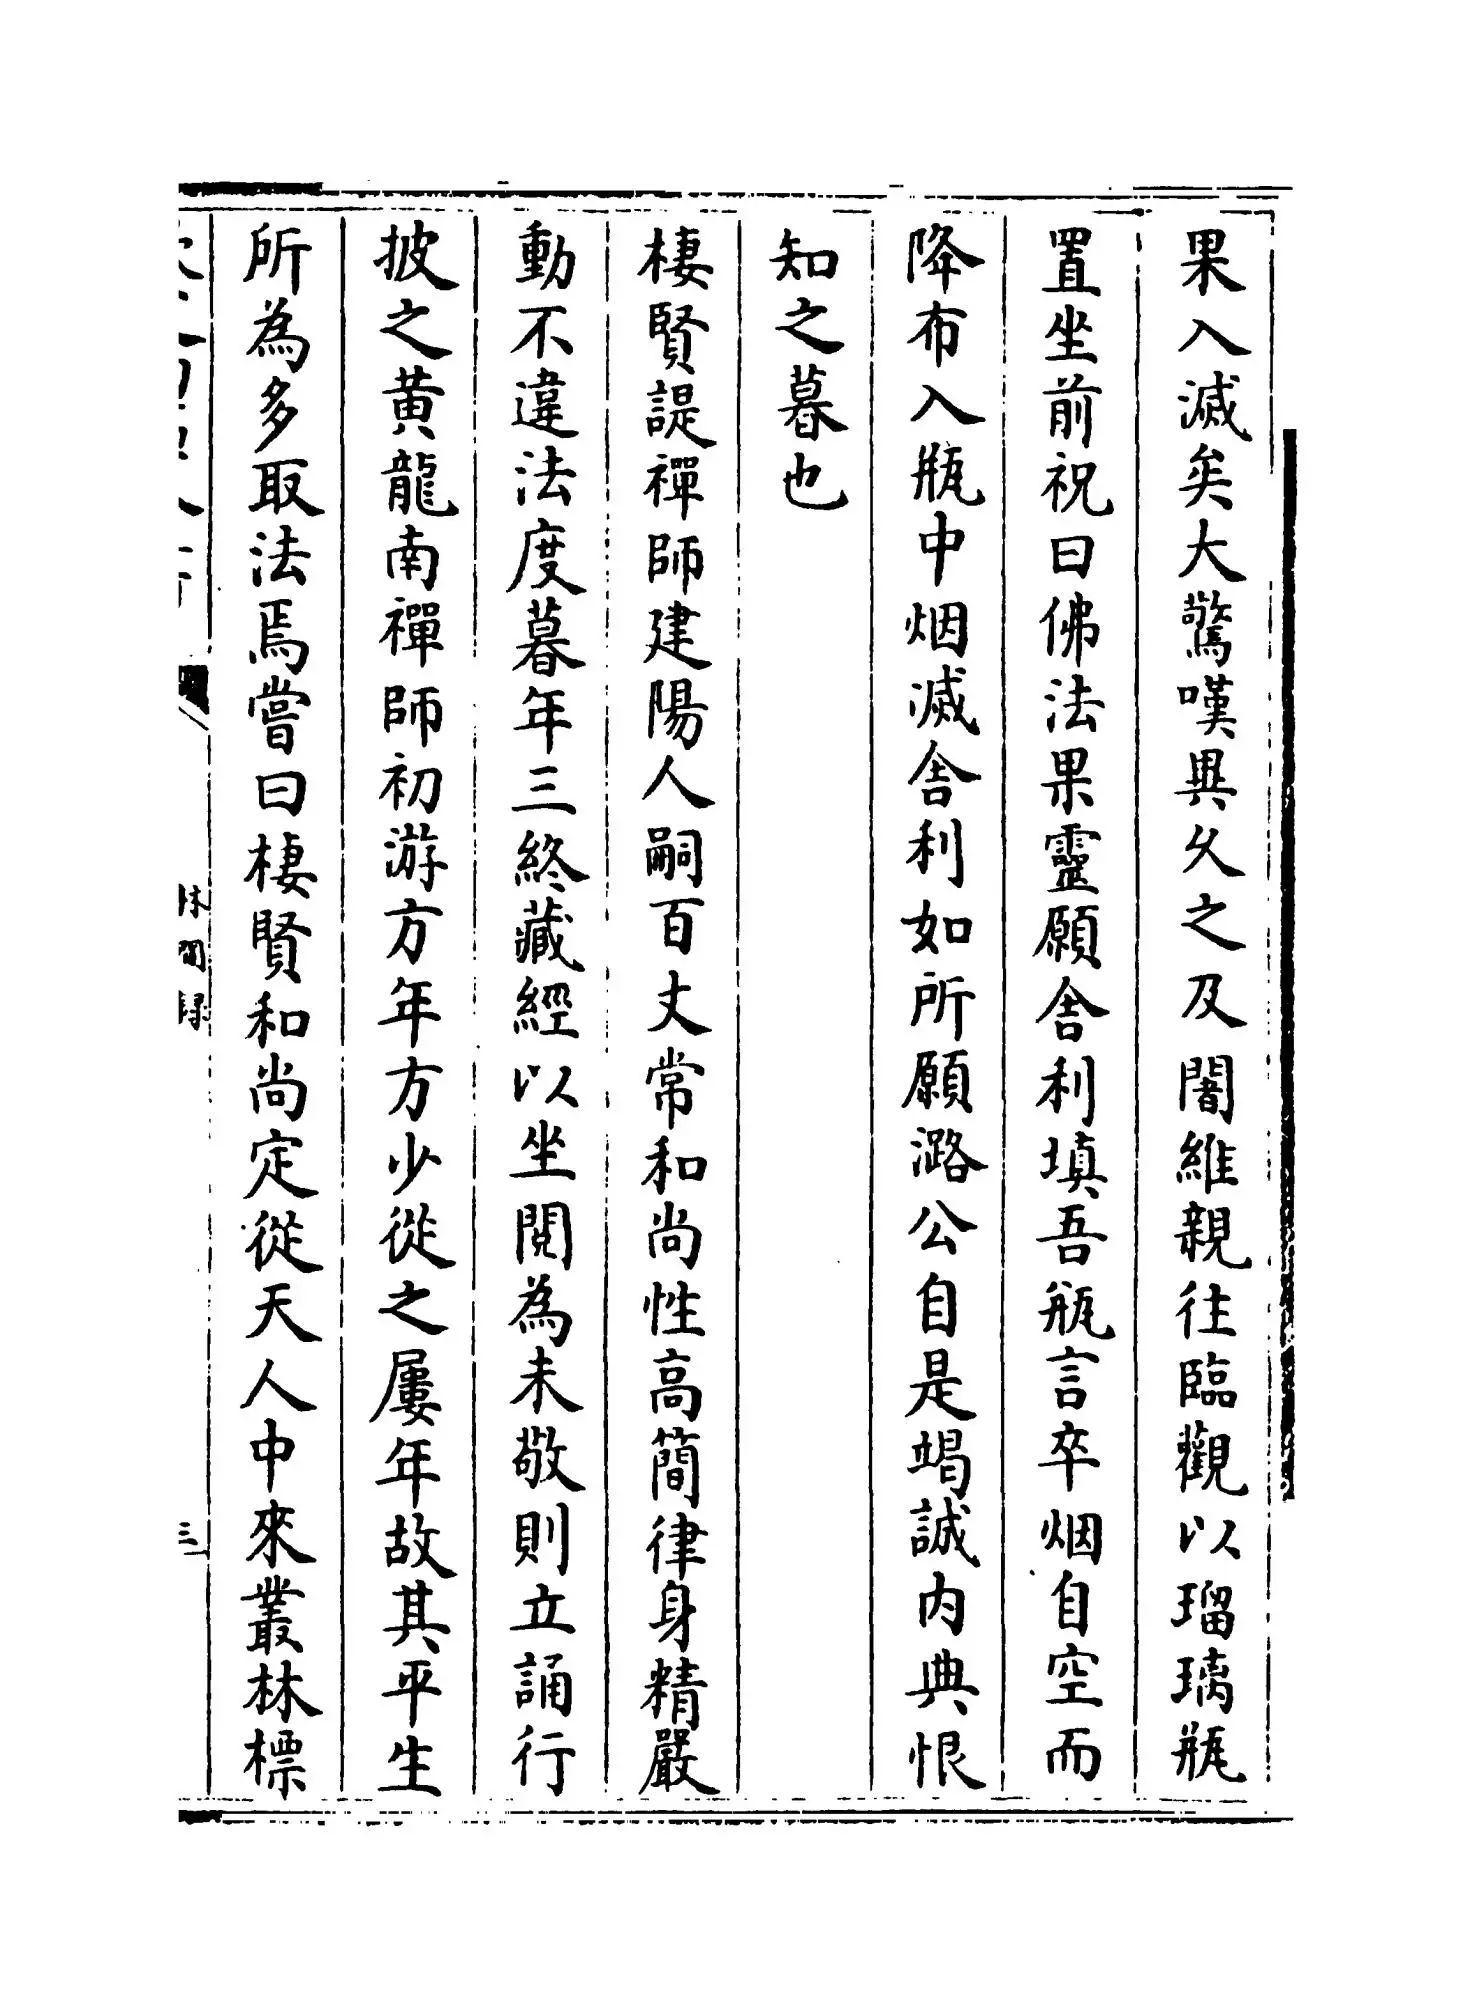 果入滅矣大驚嘆異久之及闍維親往臨觀以瑠璃瓶
置坐前祝曰佛法果靈願舎利填吾瓶言卒烟自空而
降布入瓶中烟滅舎利如所願潞公自是竭誠内典恨
知之暮也
棲賢諟禪師建陽人嗣百丈常和尚性高簡律身精嚴
動不違法度暮年三終藏經以坐閱為未敬則立誦行
披之黄龍南禪師初游方年方少從之屢年故其平生
所為多取法焉嘗曰棲賢和尚定從天人中來叢林標
林間録
三